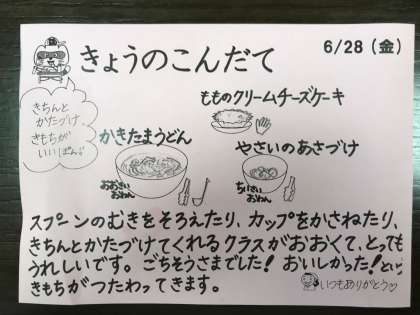 きょうのこんだて
6/28(金)
きちんと
かたづけ
きもちが
いいぽん♪
もものクリームチーズケーキ
かきたまうどん
やさいのあさづけ
おおきい
おわん
ちいさい
おわん
スプーンのむきをそろえたり、カップをかさねたり、
きちんとかたづけてくれるクラスがおおくて、とっても
うれしいです。ごちそうさまでした!おいしかった!という
きもちがつたわってきます。
いつもありがとう♡